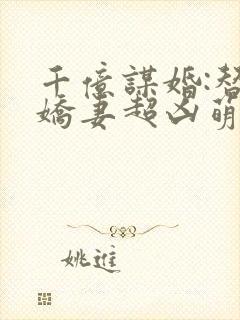 千億謀婚:替
嬌妻超凶萌
姚進